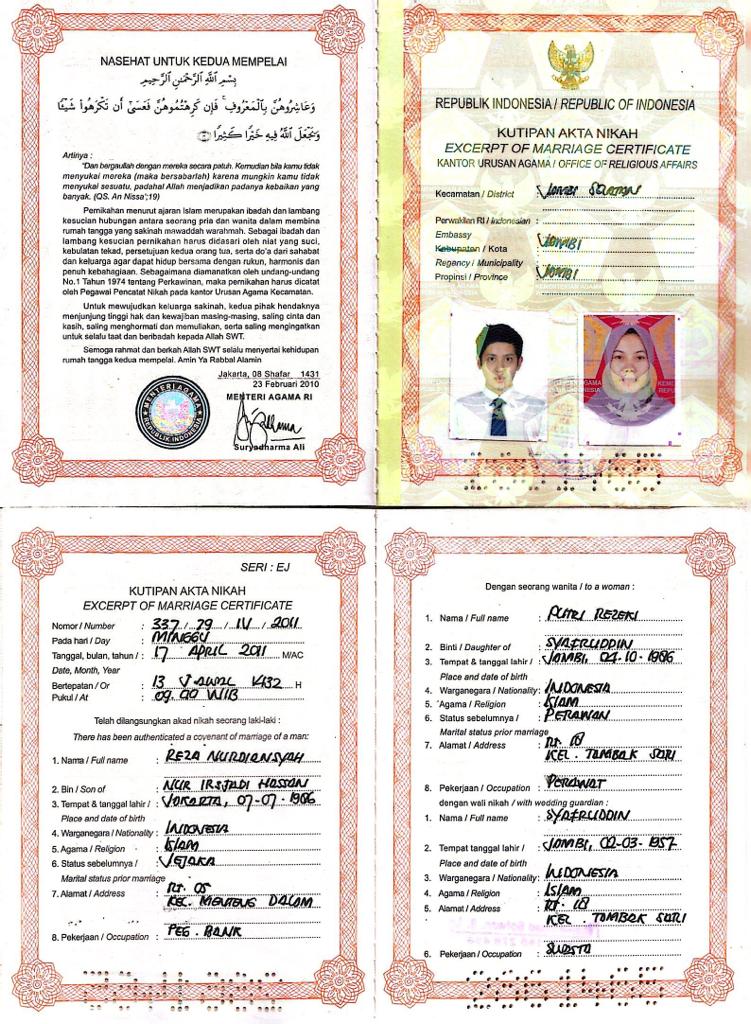 NASEHAT UNTUK KEDUA MEMPELAI
بِسْمِ اللَّهِ الرَّحْمَنِ الرَّحِيمِ
وَعَاشِرُوهُنَّ بِالْمَعْرُوفِ فَإِن كَرِهْتُمُوهُنَّ فَعَسَىٰ أَن تَكْرَهُوا شَيْئًا
وَيَجْعَلَ اللَّهُ فِيهِ خَيْرًا كَثِيرًا
Artinya :
"Dan bergaullah dengan mereka secara patuh. Kemudian bila kamu tidak
menyukai mereka (maka bersabarlah) karena mungkin kamu tidak
menyukai sesuatu, padahal Allah menjadikan padanya kebaikan yang
banyak. (QS. An Nissa';19)
Pernikahan menurut ajaran Islam merupakan ibadah dan lambang
kesucian hubungan antara seorang pria dan wanita dalam membina
rumah tangga yang sakinah mawaddah warahmah. Sebagai ibadah dan
lambang kesucian pernikahan harus didasari oleh niat yang suci,
kebulatan tekad, persetujuan kedua orang tua, serta do'a dari sahabat
dan keluarga agar dapat hidup bersama dengan rukun, harmonis dan
penuh kebahagiaan. Sebagaimana diamanatkan oleh undang-undang
No.1 Tahun 1974 tentang Perkawinan, maka pernikahan harus dicatat
oleh Pegawai Pencatat Nikah pada kantor Urusan Agama Kecamatan.
Untuk mewujudkan keluarga sakinah, kedua pihak hendaknya
menjunjung tinggi hak dan kewajiban masing-masing, saling cinta dan
kasih, saling menghormati dan memuliakan, serta saling mengingatkan
untuk selalu taat dan beribadah kepada Allah SWT.
Semoga rahmat dan berkah Allah SWT selalu menyertai kehidupan
rumah tangga kedua mempelai. Amin Ya Rabbal Alamin
Jakarta, 08 Shafar 1431
23 Februari 2010
MENTERI AGAMA RI
MENTERI AGAMA
REPUBLIK INDONESIA
Suryadharma Ali
REPUBLIK INDONESIA / REPUBLIC OF INDONESIA
KUTIPAN AKTA NIKAH
EXCERPT OF MARRIAGE CERTIFICATE
KANTOR URUSAN AGAMA / OFFICE OF RELIGIOUS AFFAIRS
Kecamatan / District : JAMBI SELATAN
Perwakilan RI / Indonesian :
Embassy
Kabupaten / Kota : JAMBI
Regency / Municipality
Propinsi / Province : JAMBI
SERI : EJ
KUTIPAN AKTA NIKAH
EXCERPT OF MARRIAGE CERTIFICATE
Nomor / Number : 337 / 79 / IV / 2011
Pada hari / Day : MINGGU
Tanggal, bulan, tahun / : 17 APRIL 2011 M/AC
Date, Month, Year
Bertepatan / Or : 13 J.AWAL 1432 H
Pukul / At : 09.00 WIB
Telah dilangsungkan akad nikah seorang laki-laki :
There has been authenticated a covenant of marriage of a man:
1. Nama / Full name : REZA NURDIANSYAH
2. Bin / Son of : NUR IRSJADI HASSAN
3. Tempat & tanggal lahir / : JAKARTA, 07-07-1986
Place and date of birth
4. Warganegara / Nationality : INDONESIA
5. Agama / Religion : ISLAM
6. Status sebelumnya / : JEJAKA
Marital status prior marriage
7. Alamat / Address : RT. 05
KEL. MENTENG DALAM
8. Pekerjaan / Occupation : PEG. BANK
Dengan seorang wanita / to a woman :
1. Nama / Full name : PUTRI REZEKI
2. Binti / Daughter of : SYAFRUDDIN
3. Tempat & tanggal lahir / : JAMBI, 04-10-1986
Place and date of birth
4. Warganegara / Nationality : INDONESIA
5. Agama / Religion : ISLAM
6. Status sebelumnya / : PERAWAN
Marital status prior marriage
7. Alamat / Address : RT. 18
KEL. TAMBAK SARI
8. Pekerjaan / Occupation : PERAWAT
dengan wali nikah / with wedding guardian :
1. Nama / Full name : SYAFRUDDIN
2. Tempat tanggal lahir / : JAMBI, 02-03-1957
Place and date of birth
3. Warganegara / Nationality : INDONESIA
4. Agama / Religion : ISLAM
5. Alamat / Address : RT. 18
KEL. TAMBAK SARI
6. Pekerjaan / Occupation : SWASTA